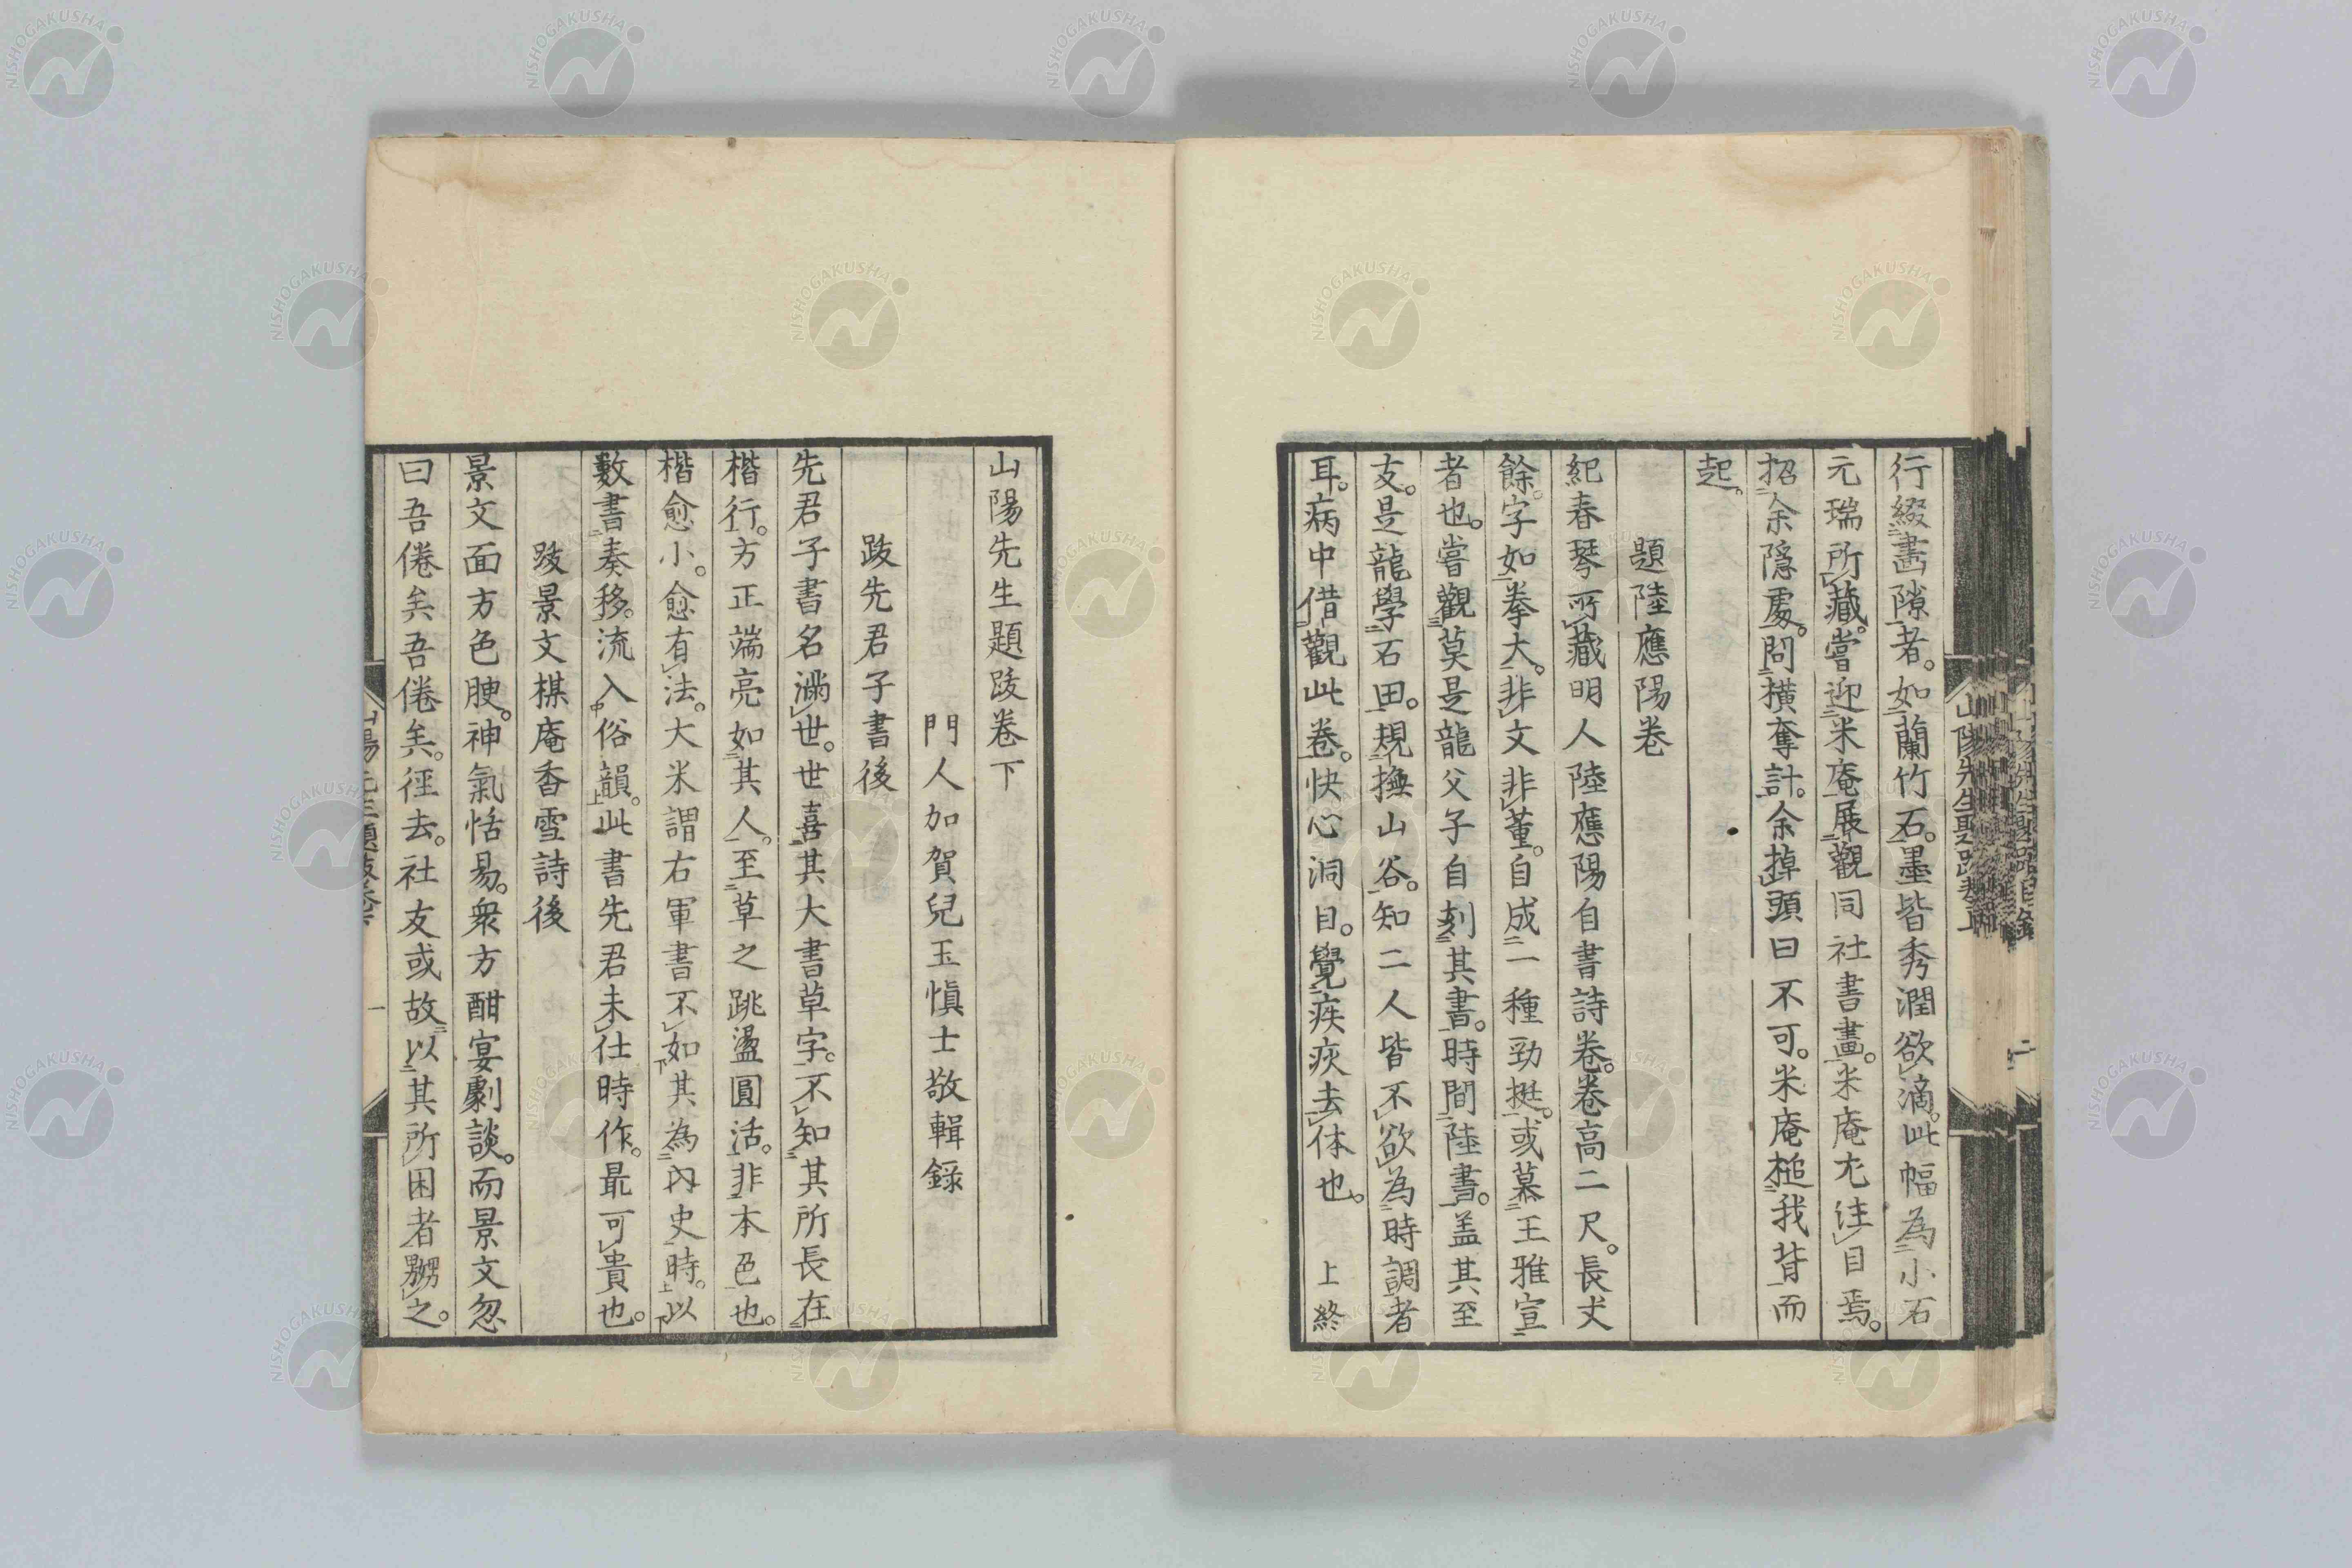 行綴畵隙者。如蘭竹石。墨皆秀潤欲滴。此幅為小石
元瑞所藏。嘗迎米庵展觀同社書畵。米庵尢注目焉。
招余隱處。問橫奪計。余掉頭曰不可。米庵槌我背而
起。
題陸應陽卷
紀春琴所藏明人陸應陽自書詩卷。卷高二尺。長丈
餘。字如拳大。非文非董。自成一種勁挺。或慕王雅宣
者也。嘗觀莫是龍父子自刻其書。時間陸書。盖其至
友。是龍學石田。規撫山谷。知二人皆不欲為時調者
耳。病中借觀此卷。快心洞目。覺疾疢去体也。 上終
山陽先生題跋卷下
門人加賀兒玉愼士敬輯録
跋先君子書後
先君子書名滿世。世喜其大書草字。不知其所長在
楷行。方正端亮如其人。至草之跳盪圓活。非本色也。
楷愈小。愈有法。大米謂右軍書不如其為内史時。以
數書奏移。流入俗韻。此書先君未仕時作。最可貴也。
跋景文棋庵香雪詩後
景文面方色腴。神氣恬易。衆方酣宴劇談。而景文忽
曰吾倦矣吾倦矣。徑去。社友或故以其所困者嬲之。
NISHOGAKUSHA